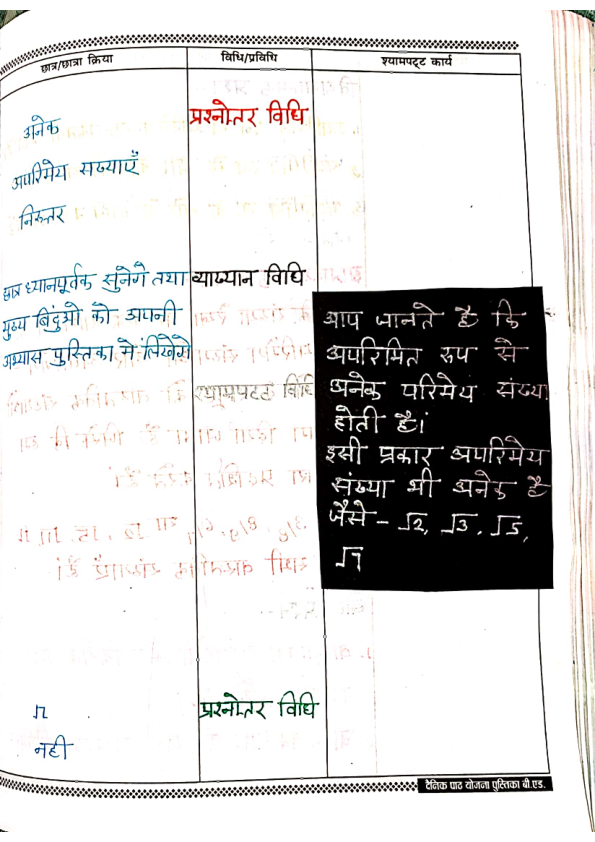 छात्र/छात्रा क्रिया
विधि/प्रविधि
श्यामपट्ट कार्य
अनेक
प्रश्नोतर विधि
अपरिमेय सख्याएँ
निरुत्तर
छात्र ध्यानपूर्वक सुनेगे तथा
व्याख्यान विधि
मुख्य बिंदुओ को अपनी
अभ्यास पुस्तिका में लिखेगे
श्यामपटट विधि
आप जानते है कि
अपरिमित रूप से
अनेक परिमेय संख्या
होती है।
इसी प्रकार अपरिमेय
संख्या भी अनेक है
जैसे - √2, √3, √5,
√7
√2
प्रश्नोतर विधि
नही
दैनिक पाठ योजना पुस्तिका बी.एड.